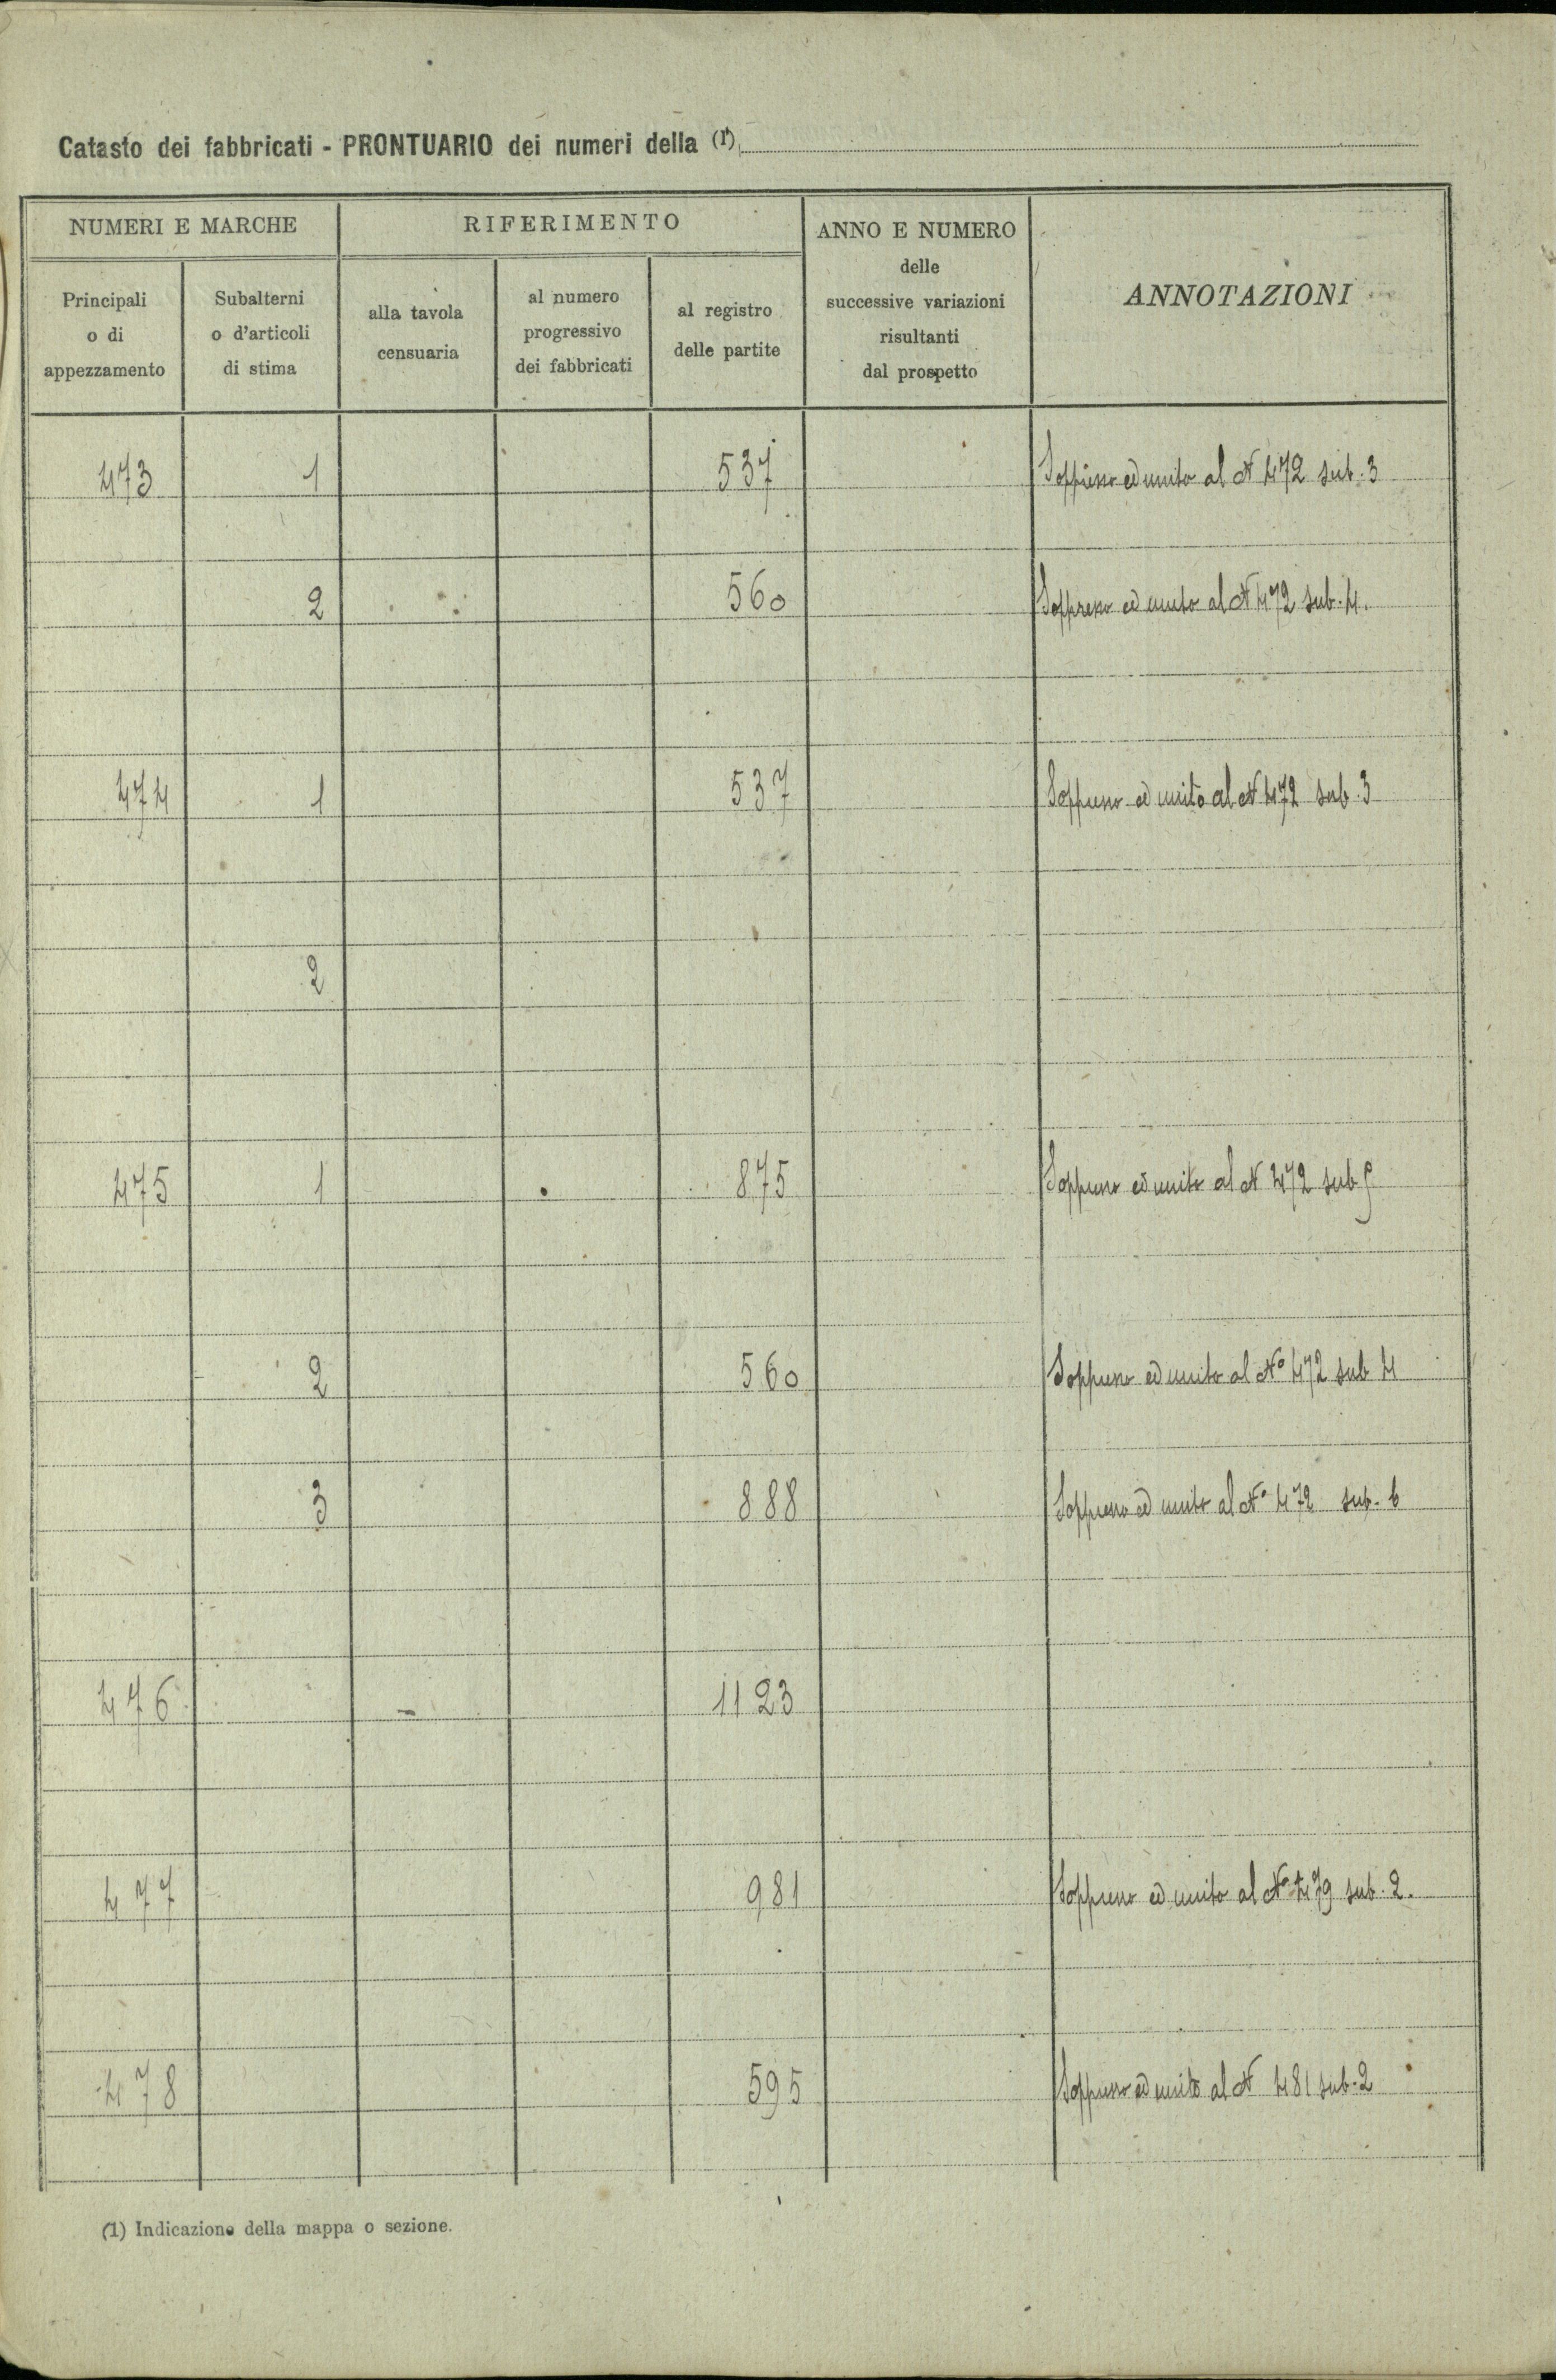 Catasto dei fabbricati - PRONTUARIO dei numeri della (1)
NUMERI E MARCHE
RIFERIMENTO
ANNO E NUMERO
delle
successive variazioni
risultanti
dal prospetto
ANNOTAZIONI
Principali
o di
appezzamento
Subalterni
o d'articoli
di stima
alla tavola
censuaria
al numero
progressivo
dei fabbricati
al registro
delle partite
473 1 537 Soppresso ed unito al N 472 sub. 3
2 560 Soppresso ed unito al N 472 sub. 4.
474 1 537 Soppresso ed unito al N 472 sub. 3
2
475 1 875 Soppresso ed unito al N 472 sub 5
2 560 Soppresso ed unito al N° 472 sub 4
3 888 Soppresso ed unito al N° 472 sub. 6
476 - 1123
477 981 Soppresso ed unito al N° 479 sub. 2.
478 595 Soppresso ed unito al N 481 sub. 2
(1) Indicazione della mappa o sezione.